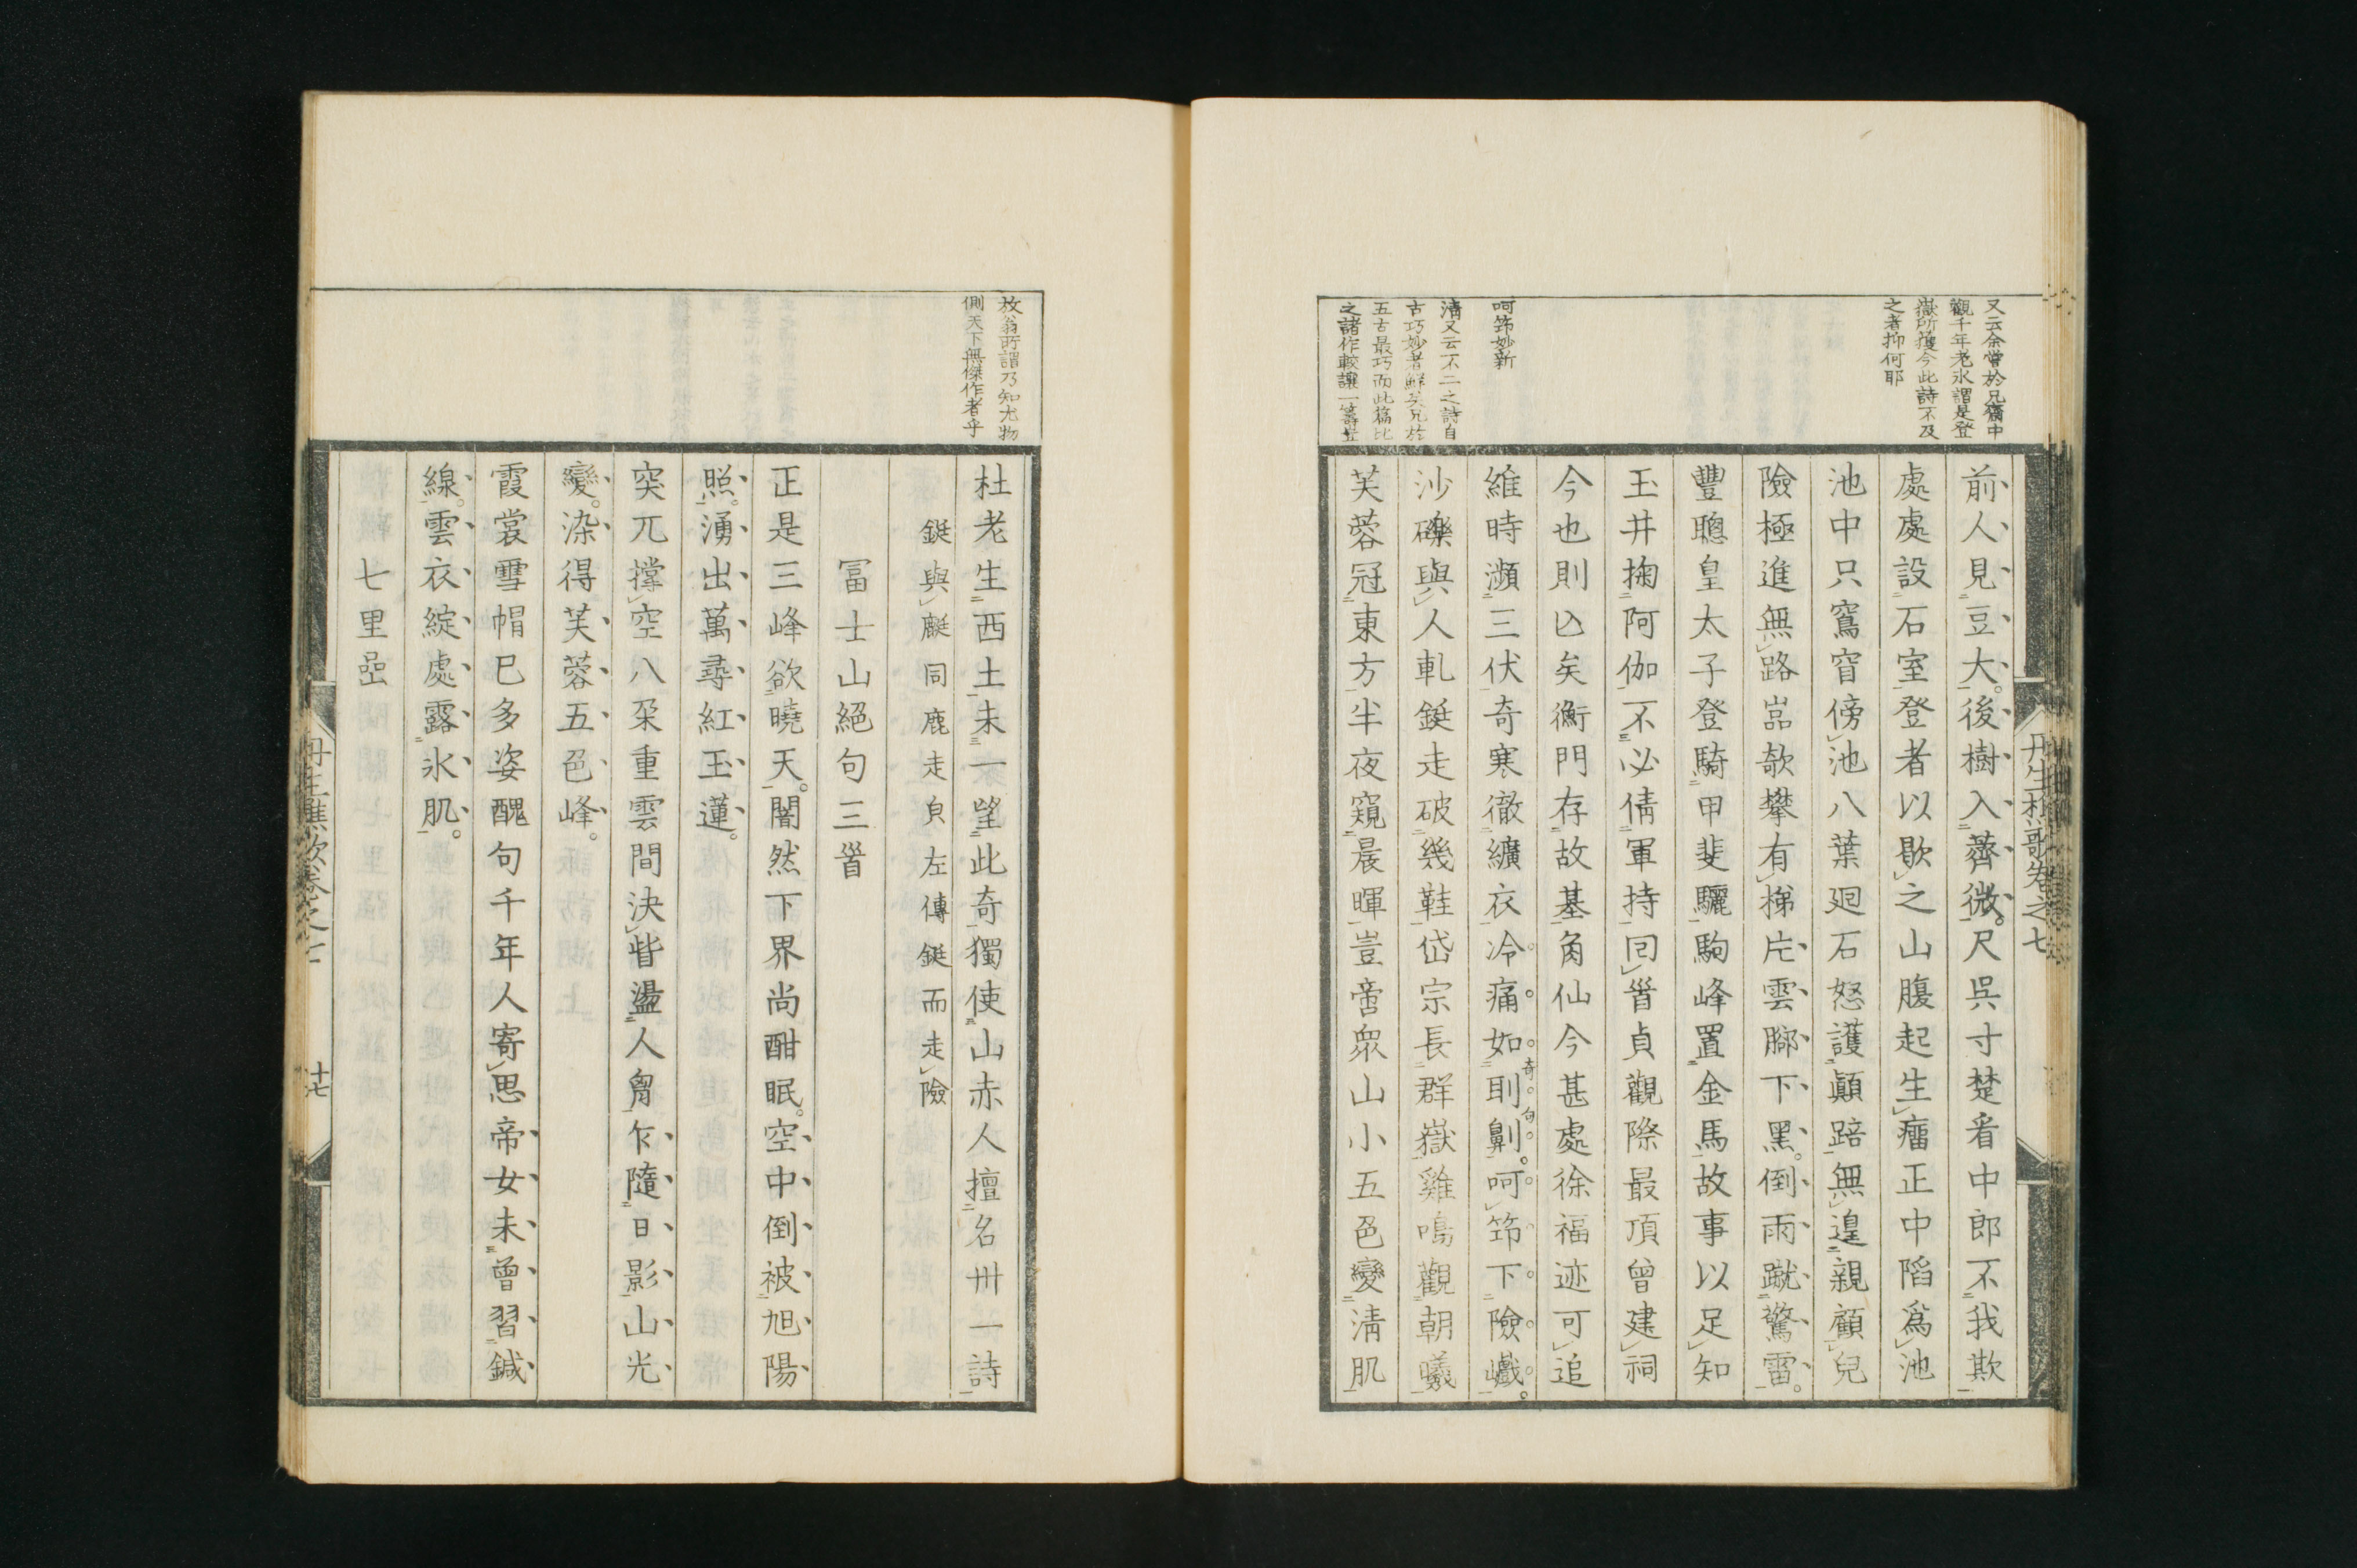 又云余嘗於兄齋中
觀千年老氷謂是登
嶽所獲今此詩不及
之者抑何耶
呵筇妙新
淸又云不二之詩自
古巧妙者鮮矣兄於
五古最巧而此篇比
之諸作較讓一籌豈
前人見豆大後樹入薺微尺呉寸楚看中郎不我欺
處處設石室登者以歇之山腹起生瘤正中陷爲池
池中只窵窅傍池八葉廻石怒護顚踣無遑親顧兒
險極進無路嵓欹攀有梯片雲腳下黑倒雨蹴驚雷
豐聰皇太子登騎甲斐驪駒峰置金馬故事以足知
玉井掬阿伽不必倩軍持囘首貞觀際最頂曾建祠
今也則亾矣衡門存故基角仙今甚處徐福迹可追
維時瀕三伏奇寒徹纊衣冷痛如刵劓呵筇下險巇
奇句
沙礫與人軋鋌走破幾鞋岱宗長群嶽雞鳴觀朝曦
芙蓉冠東方半夜窺晨暉豈啻衆山小五色變淸肌
丹生樵歌卷之七
放翁所謂乃知尤物
側天下無傑作者乎
杜老生西土未一望此奇獨使山赤人擅名卅一詩
鋌與䮾同鹿走負左傳鋌而走險
冨士山絕句三首
正是三峰欲曉天闇然下界尚酣眠空中倒被旭陽
照湧出萬尋紅玉蓮
突兀撑空八朶重雲間決眥盪人胷乍隨日影山光
變染得芙蓉五色峰
霞裳雪帽已多姿醜句千年人寄思帝女未曾習鍼
線雲衣綻處露氷肌
七里嵒
丹生樵歌卷之七
十七